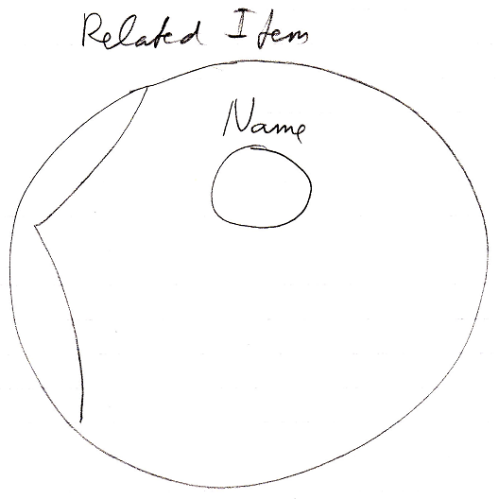 Related Item
Name